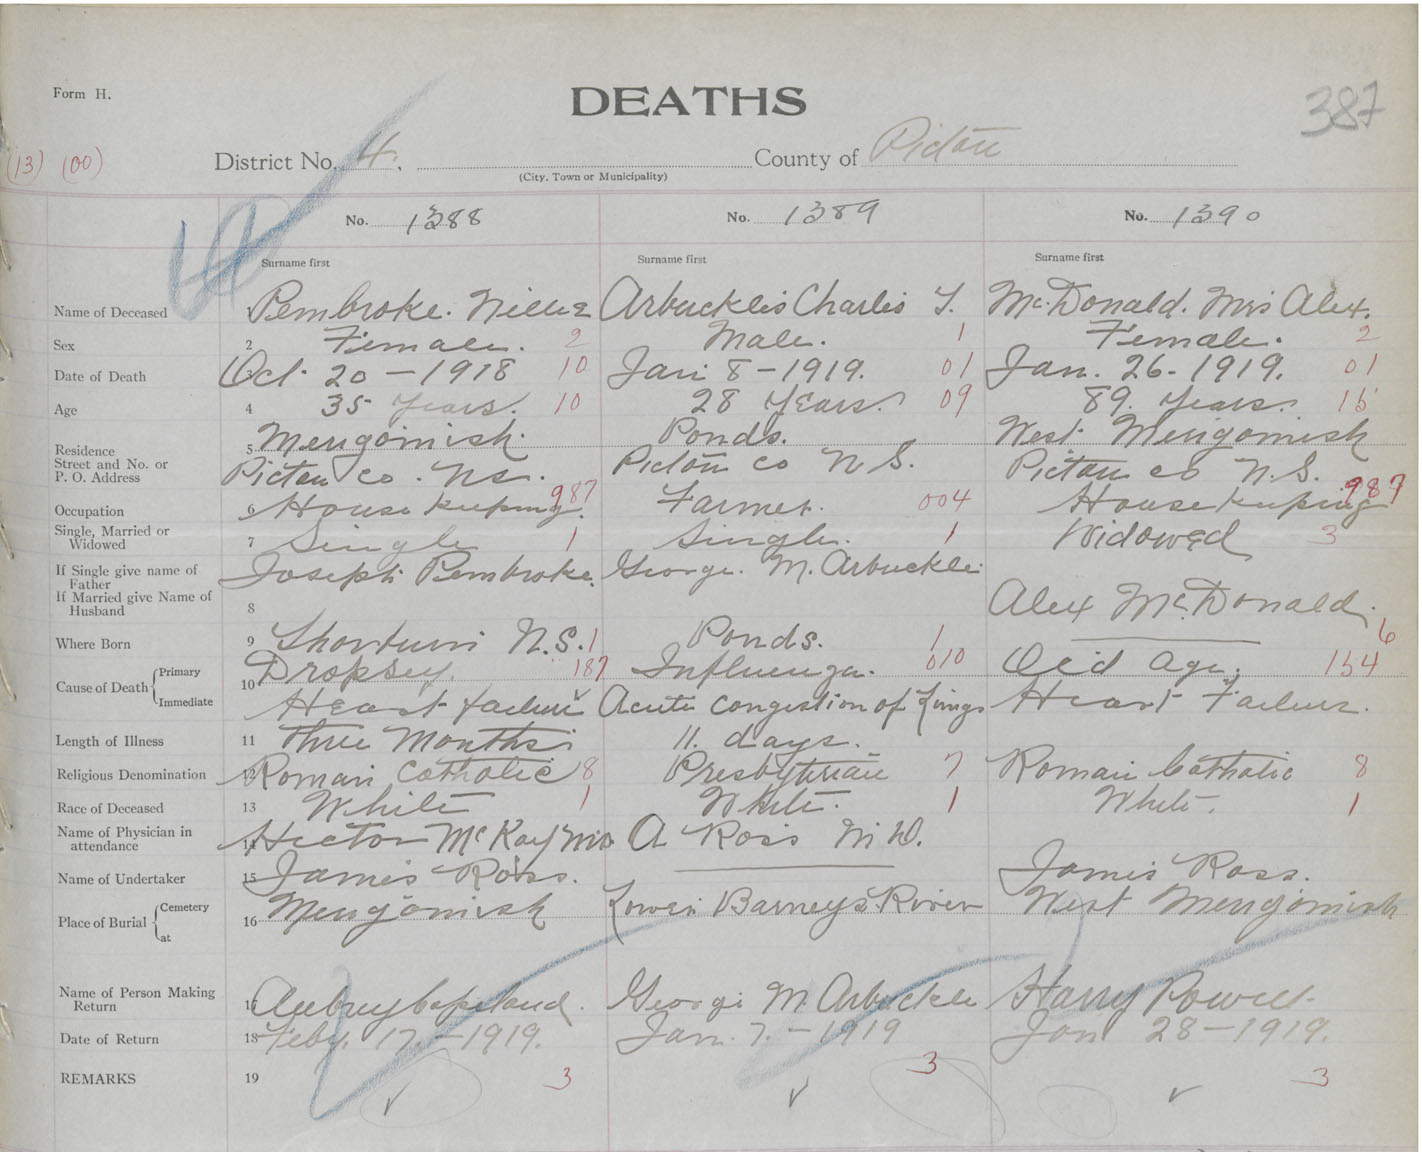 Form H.
DEATHS
387
(13) (00)
District No. 4, County of Pictou
(City, Town or Municipality)
No. 1388 No. 1389 No. 1390
Surname first Surname first Surname first
Name of Deceased 1 Pembroke. Nellie Arbuckle Charlie McDonald. Mrs Alex.
Sex 2 Female. 2 Male. 1 Female. 2
Date of Death 3 Oct. 20 - 1918 10 Jan 8 - 1919. 01 Jan. 26 - 1919. 01
Age 4 35 Years. 10 28 Years. 09 89 Years. 15
Residence 5 Merigomish. Ponds. West Merigomish
Street and No. or
P. O. Address Pictou co. NS. Pictou co N S. Pictou co N.S.
Occupation 6 Housekeeping. 987 Farmer. 004 Housekeeping 987
Single, Married or
Widowed 7 Single 1 Single. 1 Widowed 3
If Single give name of
Father Joseph Pembroke. George. M. Arbuckle
If Married give Name of
Husband 8 Alex McDonald.
Where Born 9 N.S. 1 Ponds. 1 6
Cause of Death Primary 10 Dropsey. 187 Influenza. 010 Old Age. 154
Immediate Heart failure Acute Congestion of Lungs Heart Failure.
Length of Illness 11 Three Months 11. days.
Religious Denomination 12 Roman Catholic 8 Presbyterian 7 Roman Catholic 8
Race of Deceased 13 White 1 White. 1 White. 1
Name of Physician in
attendance 14 Hector McKay MD A Ross M.D.
Name of Undertaker 15 James Ross. James Ross.
Place of Burial Cemetery at 16 Merigomish Lower Barneys River West Merigomish
Name of Person Making
Return 17 Aubrey Copeland. George M. Arbuckle Harry Powell.
Date of Return 18 Feby. 17 - 1919. Jan. 7. - 1919 Jan 28 - 1919.
REMARKS 19 3 3 3